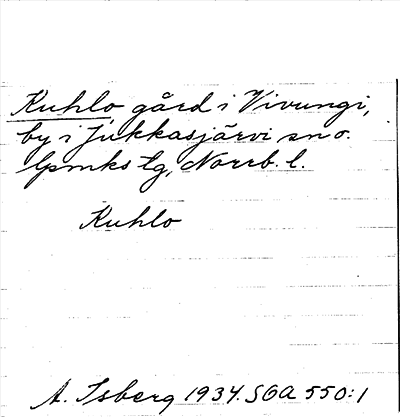 Kuhlo gård i Vivungi,
by i Jukkasjärvi sn o.
lpmks tg, Norrb. l.
Kuhlo
A. Isberg 1934. SOA 550:1